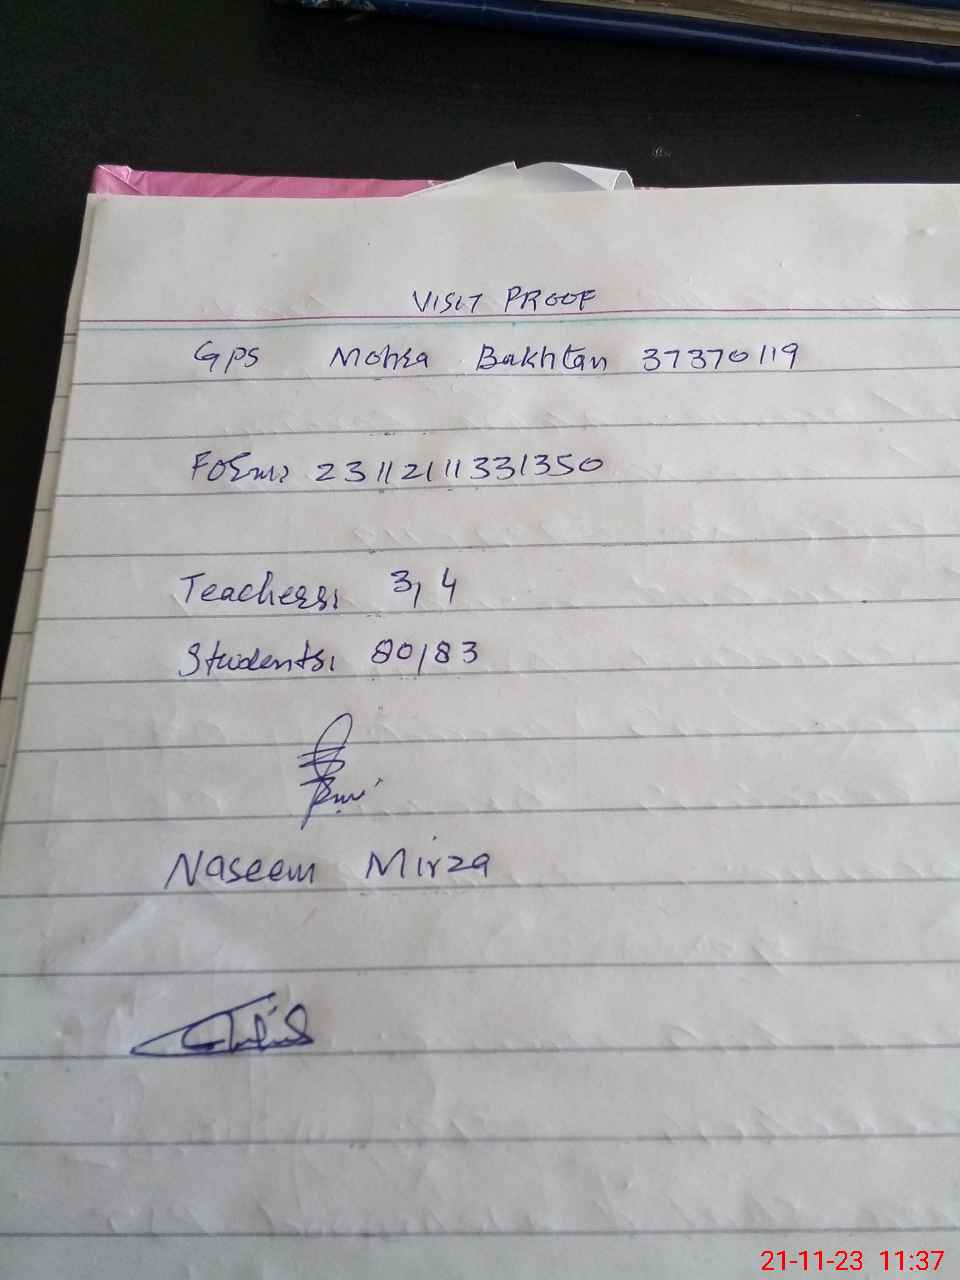 VISIT PROOF
GPS Mohra Bakhtan 37370119
Form: 23112111331350
Teachers: 3, 4
Students: 80/83
Naseem Mirza
21-11-23 11:37